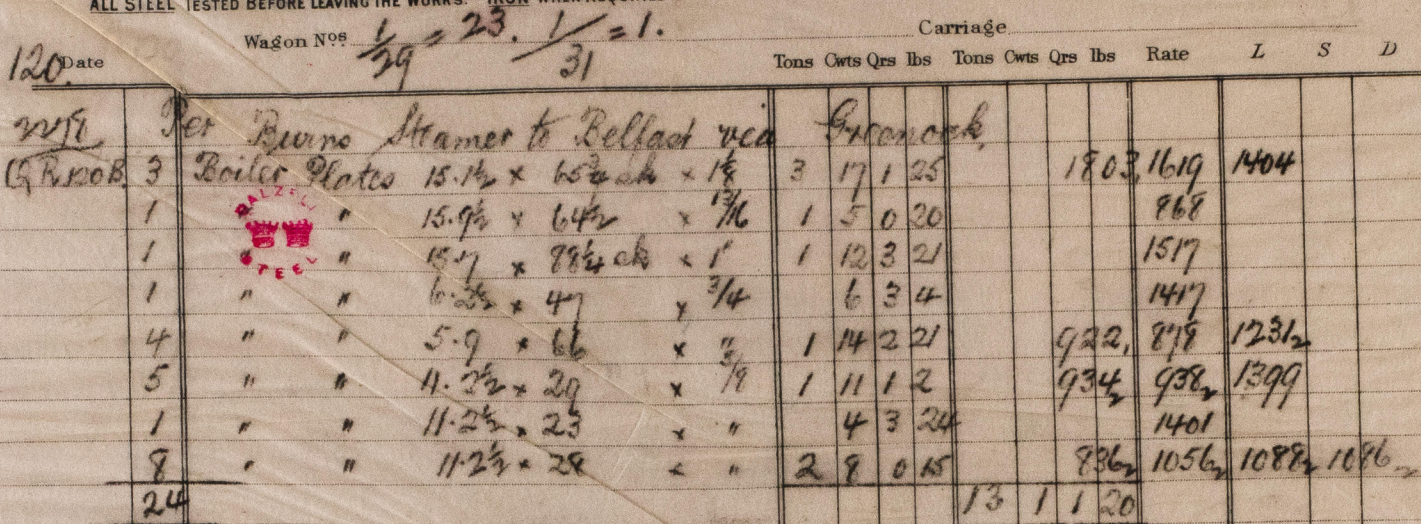 ALL STEEL TESTED BEFORE LEAVING THE WORKS.
Wagon Nos 1/29 = 23. 1/31 = 1. Carriage
120. Date Tons Cwts Qrs lbs Tons Cwts Qrs lbs Rate L S D
Per Burns Steamer to Belfast via Greenock
3 Boiler Plates 15.1½ × 65¾ × 1⅝ 3 17 1 25 1803, 1619 1404
1 " 15.9½ × 64½ × 13/16 1 5 0 20 868
DALZELL STEEL
1 " " 15.7 × 88¼ × 1" 1 12 3 21 1517
1 " " 6.2½ × 47 × 3/4 6 3 4 1417
4 " " 5.9 × 66 × " 1 14 2 21 922, 878 1231₂
5 " " 11.2½ × 29 × 3/8 1 11 1 2 934₂ 938₂ 1399
1 " " 11.2½ × 23 × " 4 3 24 1401
8 " " 11.2½ × 28 × " 2 8 0 15 836₂ 1056₂ 1088₂ 1086₂
24 13 1 1 20